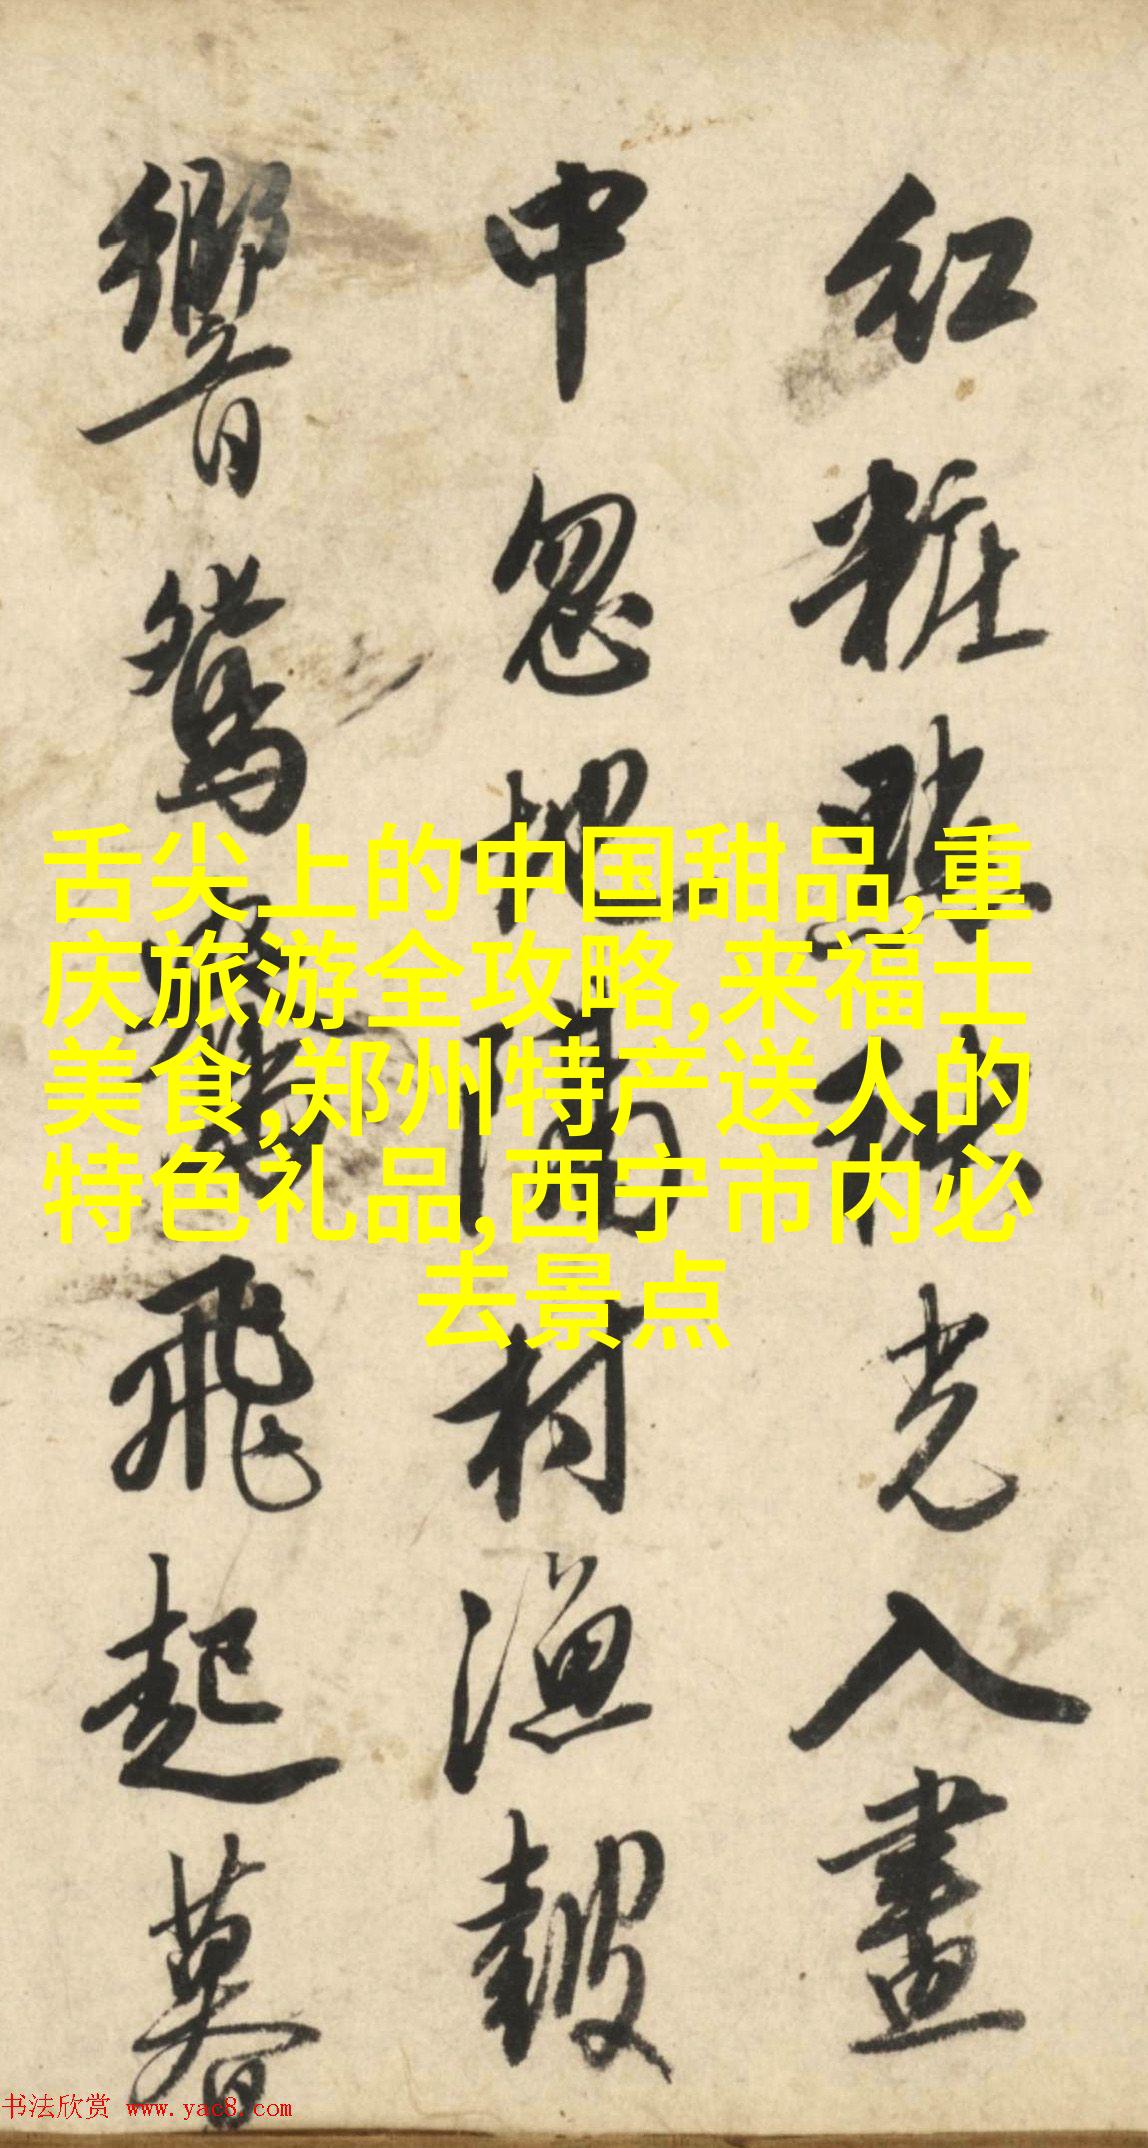 紅粧秋光入畫
中忽地隔村漁鼓
響鴛鴦飛起暮
舌尖上的中国甜品,重
庆旅游全攻略,来福士
美食,郑州特产送人的
特色礼品,西宁市内必
去景点
书法欣赏 www.yac8.com